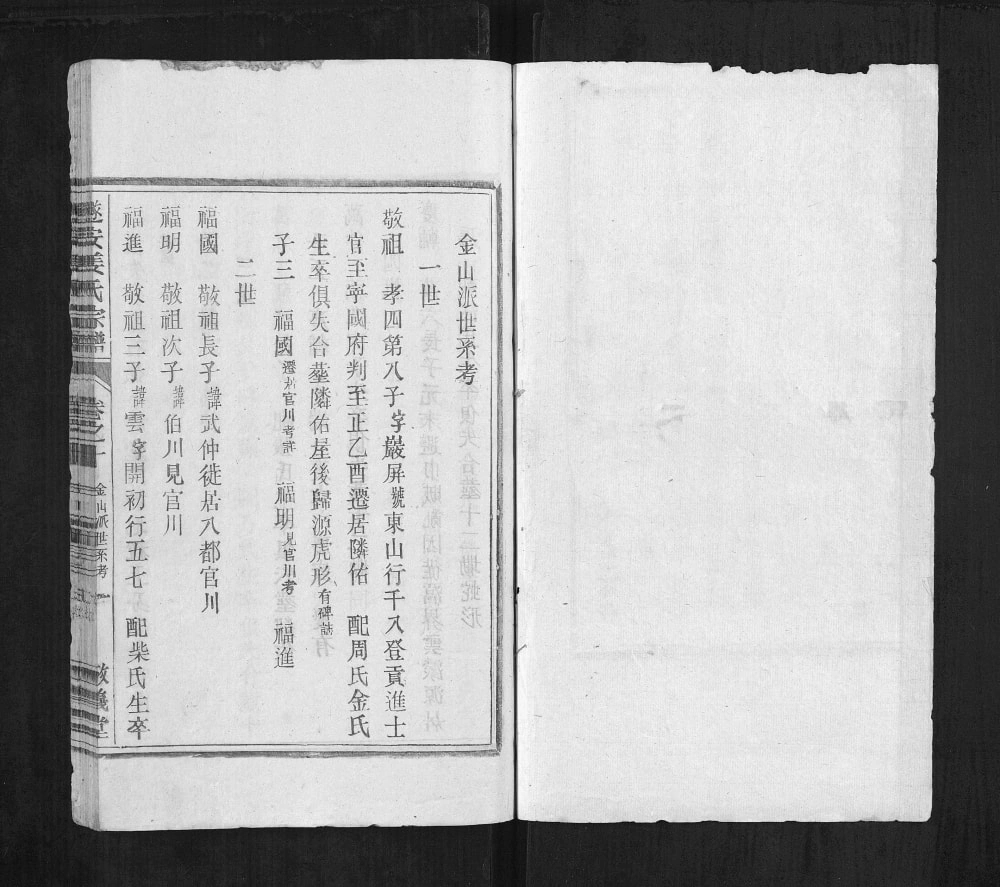 金山派世系考
一世
敬祖 孝四第八子字嚴屏號東山行千八登貢進士
官至寧國府判至正乙酉遷居隣佑 配周氏金氏
生卒俱失合塟隣佑屋後歸源虎形有碑誌
子三 福國遷居官川考詳 福明見官川考 福進
二世
福國 敬祖長子諱武仲徙居八都官川
福明 敬祖次子諱伯川見官川
福進 敬祖三子諱雲字開初行五七 配柴氏生卒
遂安姜氏宗譜 卷之一 金山派世系考 一 敬義堂